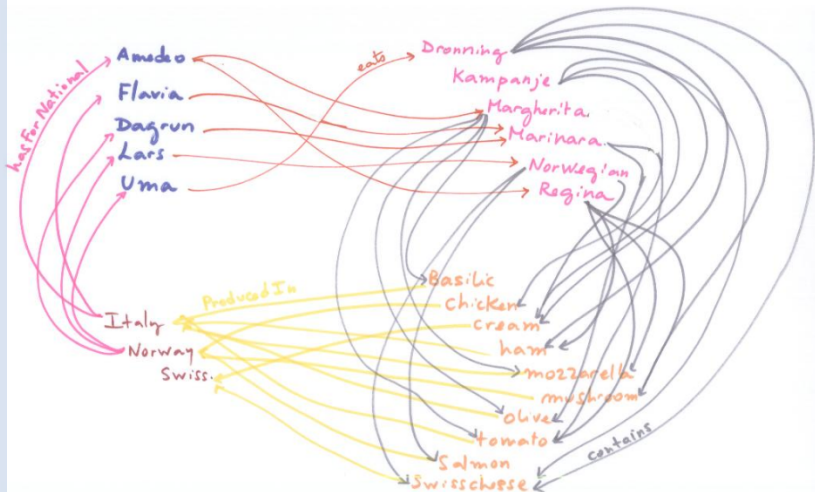 hasForNational
Amedeo
Flavia
Dagrun
Lars
Uma
eats
Dronning
Kampanje
Margherita.
Marinara.
Norwegian
Regina
Produced In
Italy
Norway
Swiss.
Basilic
chicken
cream
ham
mozzarella
mushroom
olive
tomato
Salmon
Swisscheese
contains